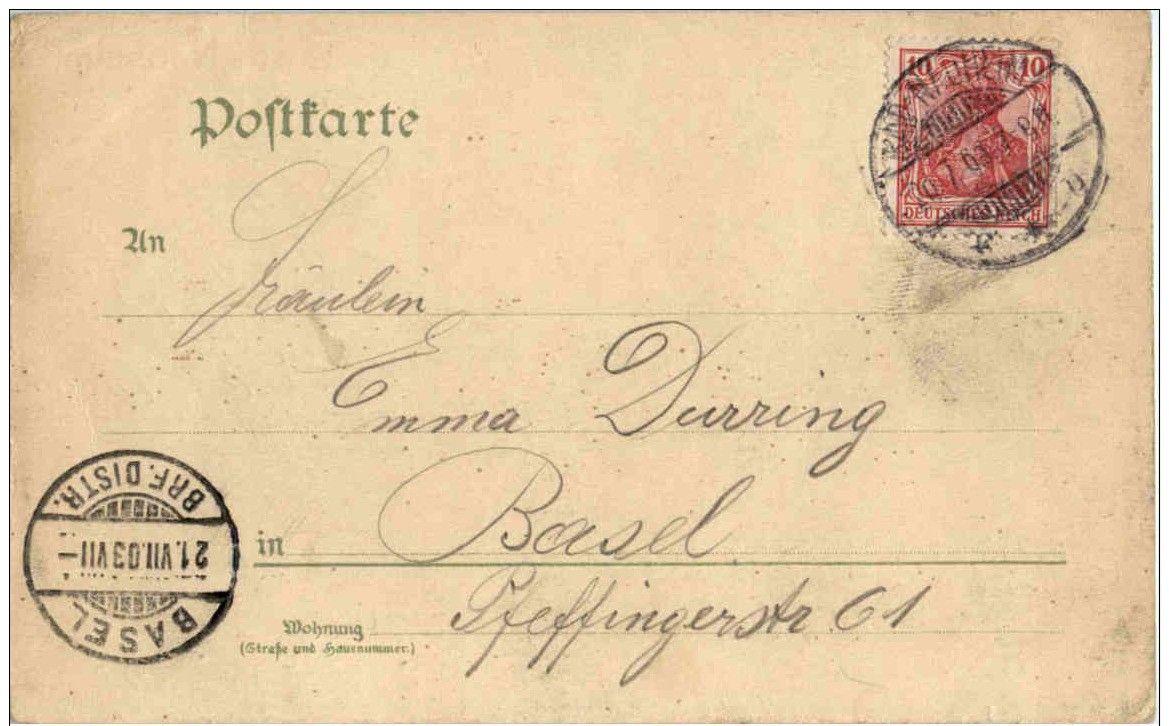 Postkarte
10 10
DEUTSCHES REICH
An
Fräulein
Emma Durring
in Basel
Wohnung Pfeffingerstr 61
(Straße und Hausnummer.)
BRF. DISTR.
21.VII.03 VII
BASEL